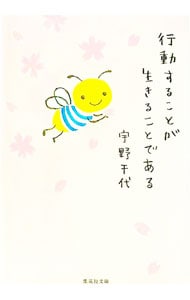 行動することが
生きることである
宇野千代
集英社文庫